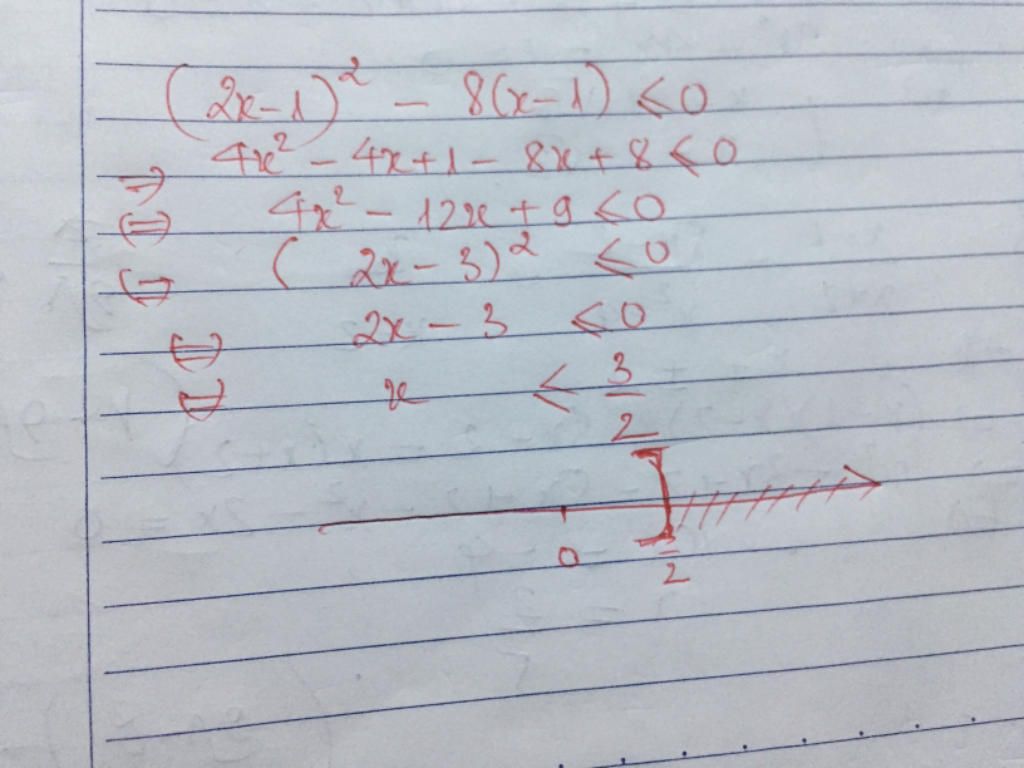 (2x-1)² - 8(x-1) ≤ 0
⇒ 4x² - 4x + 1 - 8x + 8 ≤ 0
⇔ 4x² - 12x + 9 ≤ 0
⇔ (2x - 3)² ≤ 0
⇔ 2x - 3 ≤ 0
⇔ x ≤ 3/2
0 3/2